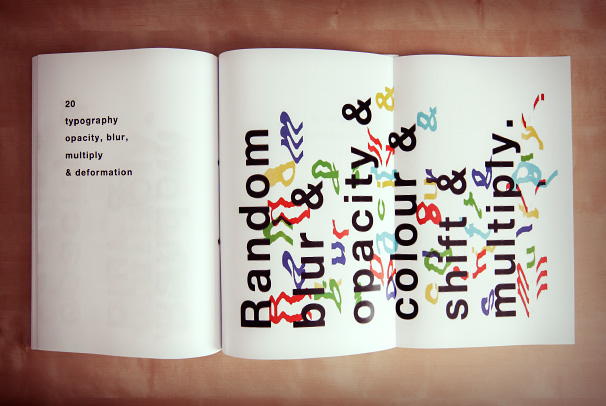 20
typography
opacity, blur,
multiply
& deformation
Random
blur &
opacity &
colour &
shift &
multiply.